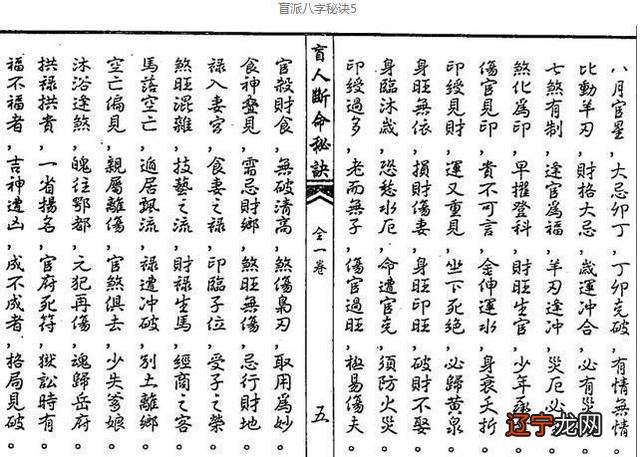 盲派八字秘诀5
八月官星,大忌卯丁,丁卯克破,有情無情
比動羊刃,財格大忌,歲運冲合,必有災
七煞有制,逢官爲福,羊刃逢冲,災厄必
煞化爲印,早擢登科,財旺生官,少年
傷官見印,貴不可言,金伸運水,身衰夭折
印綬見財,運又重見,坐下死絕,必歸黃泉。
身旺無依,損財傷妻,身旺印旺,破財不娶。
身臨沐,恐愁水厄,命遭官克,須防火災。
印綬過多,老而無子,傷官過旺,極易傷夫。
盲人断命秘訣
全一卷
五
官殺財食,無破清高,煞傷梟刃,取用爲妙。
食神疊見,需忌財鄉,煞旺無傷,忌行財地。
祿入妻宮,食妻之祿,印臨子位,受子之榮。
煞旺混雜,技藝之流,財祿生馬,經商之客。
馬落空亡,遁居飄流,祿遭冲破,別土離鄉。
空亡偏見,親屬離傷,官煞俱去,少失爹娘。
沐浴逢煞,魄往鄷都,元犯再傷,魂歸岳府。
拱祿拱貴,一省揚名,官府死符,獄訟時有。
福不福者,吉神遭凶,成不成者,格局見破。
辽宁龙网